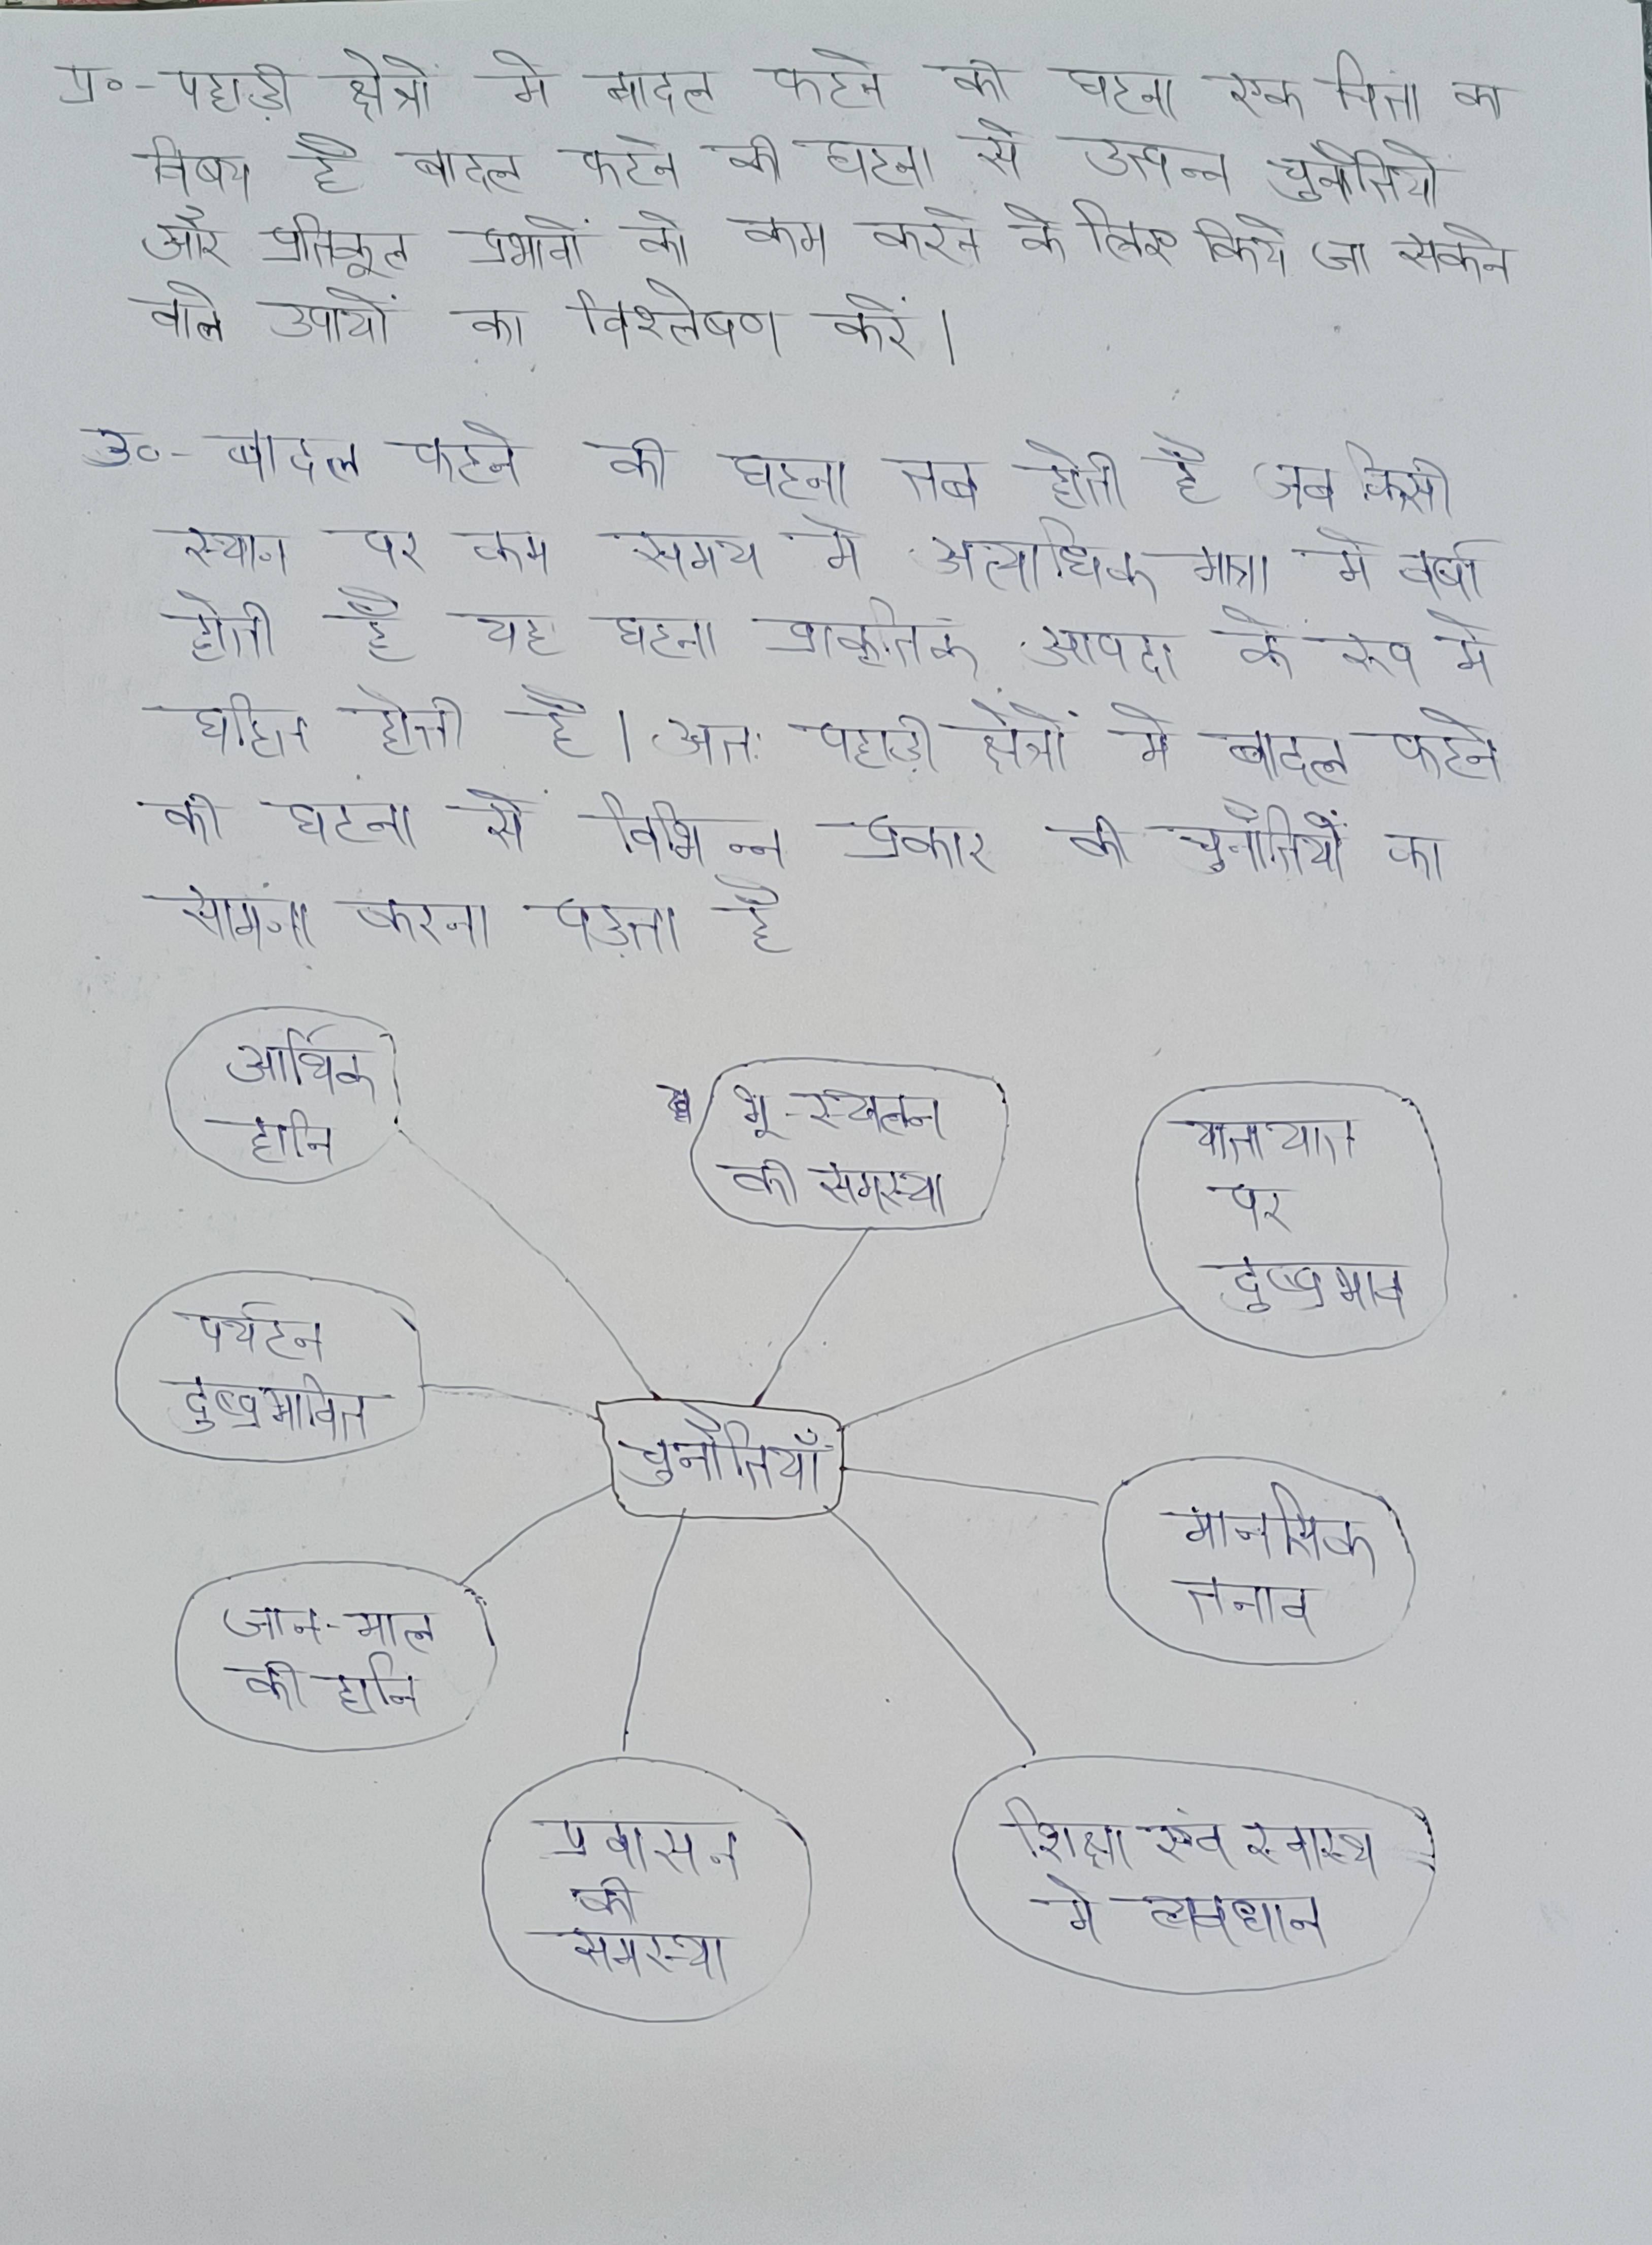 प्र०- पहाड़ी क्षेत्रों में बादल फटने की घटना एक चिंता का
विषय है बादल फटने की घटना से उत्पन्न चुनौतियों
और प्रतिकूल प्रभावों को कम करने के लिए किये जा सकने
वाले उपायों का विश्लेषण करें।
उ०- बादल फटने की घटना तब होती है जब किसी
स्थान पर कम समय मे अत्याधिक मात्रा मे वर्षा
होती है यह घटना प्राकृतिक आपदा के रूप मे
घटित होती है। अतः पहाड़ी क्षेत्रों मे बादल फटने
की घटना से विभिन्न प्रकार की चुनौतियों का
सामना करना पड़ता है
आर्थिक
हानि
भू-स्खलन
की समस्या
यातायात
पर
दुष्प्रभाव
पर्यटन
दुष्प्रभावित
चुनौतियाँ
मानसिक
तनाव
जान-माल
की हानि
प्रवासन
की
समस्या
शिक्षा एंव स्वास्थ
मे व्यवधान